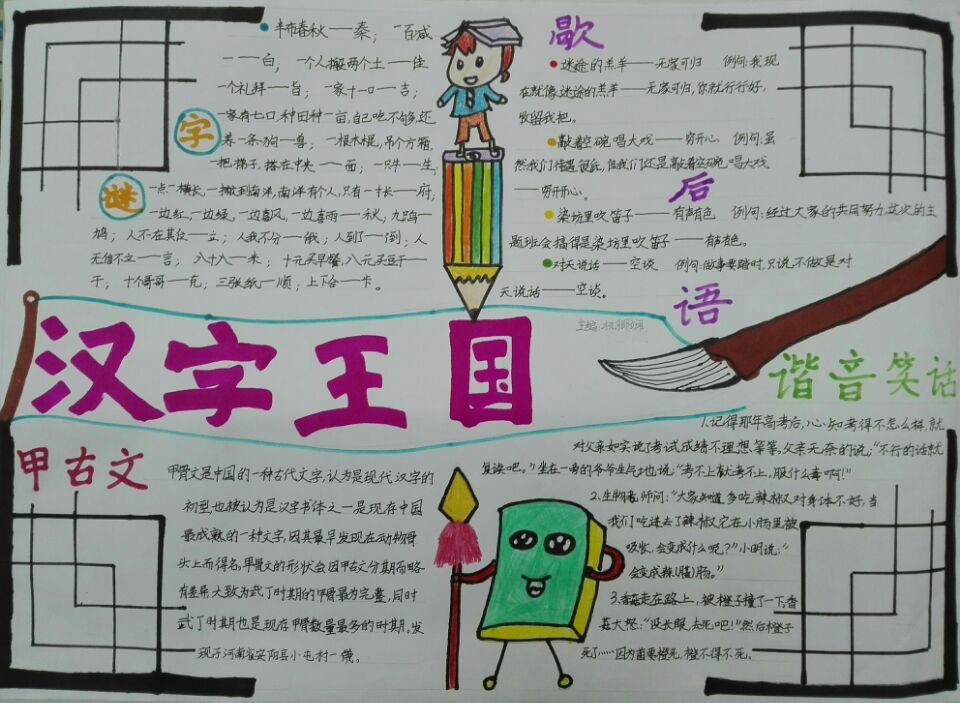 字谜
半部春秋——秦； 一百减
一——白； 一个人搬两个土——佳
一个礼拜——旨； 一家十一口——吉；
一家有七口，种田种一亩，自己吃不够，还
养一条狗——兽； 一根木棍，吊个方箱，
一把梯子，搭在中央——面； 一只牛——生
一点一横长，一撇到南洋，南洋有个人，只有一寸长——府；
一边红，一边绿，一边喜风，一边喜雨——秋；九只鸟——
鸠； 人不在其位——立； 人我不分——俄； 人到了——倒； 人
无信不立——言； 八十八——米； 十元买早餐，八元买豆——
干； 十个哥哥——克；三张纸——顺；上下合——卡。
歇后语
迷途的羔羊——无家可归 例句：我现
在就像迷途的羔羊——无家可归，你就行行好，
收留我把。
敲着空碗唱大戏——穷开心 例句：虽
然我们待遇很低，但我们还是敲着空碗唱大戏
——穷开心。
染坊里吹笛子——有声有色 例句：经过大家的共同努力，这次的主
题班会搞得是染坊里吹笛子——有声有色。
对天说话——空谈 例句：做事要踏时，只说不做是对
天说话——空谈。
汉字王国
主编：
甲古文
甲骨文是中国的一种古代文字，认为是现代汉字的
初型也被认为是汉字书体之一是现在中国
最成熟的一种文字，因其最早发现在动物骨
头上而得名，甲骨文的形状会因甲古文分期而略
有差异大致为武丁时期的甲骨最为完整，同时
武丁时期也是现存甲骨数量最多的时期。发
现于河南省安阳县小屯村一带。
谐音笑话
1.记得那年高考后，心知考得不怎么样，就
对父亲如实说了考试成绩不理想等等。父亲无奈的说：“不行的话就
复读吧。”坐在一旁的爷爷生气地说：“考不上就考不上，服什么毒啊！”
2.生物老师问：“大家知道多吃辣椒对身体不好，当
我们吃进去了辣椒它在小肠里被
吸收，会变成什么呢？”小明说：“
会变成辣（腊）肠。”
3.香菇走在路上，被橙子撞了一下香
菇大怒：“没长眼，去死吧！”然后橙子
死了……因为菌要橙死，橙不得不死。